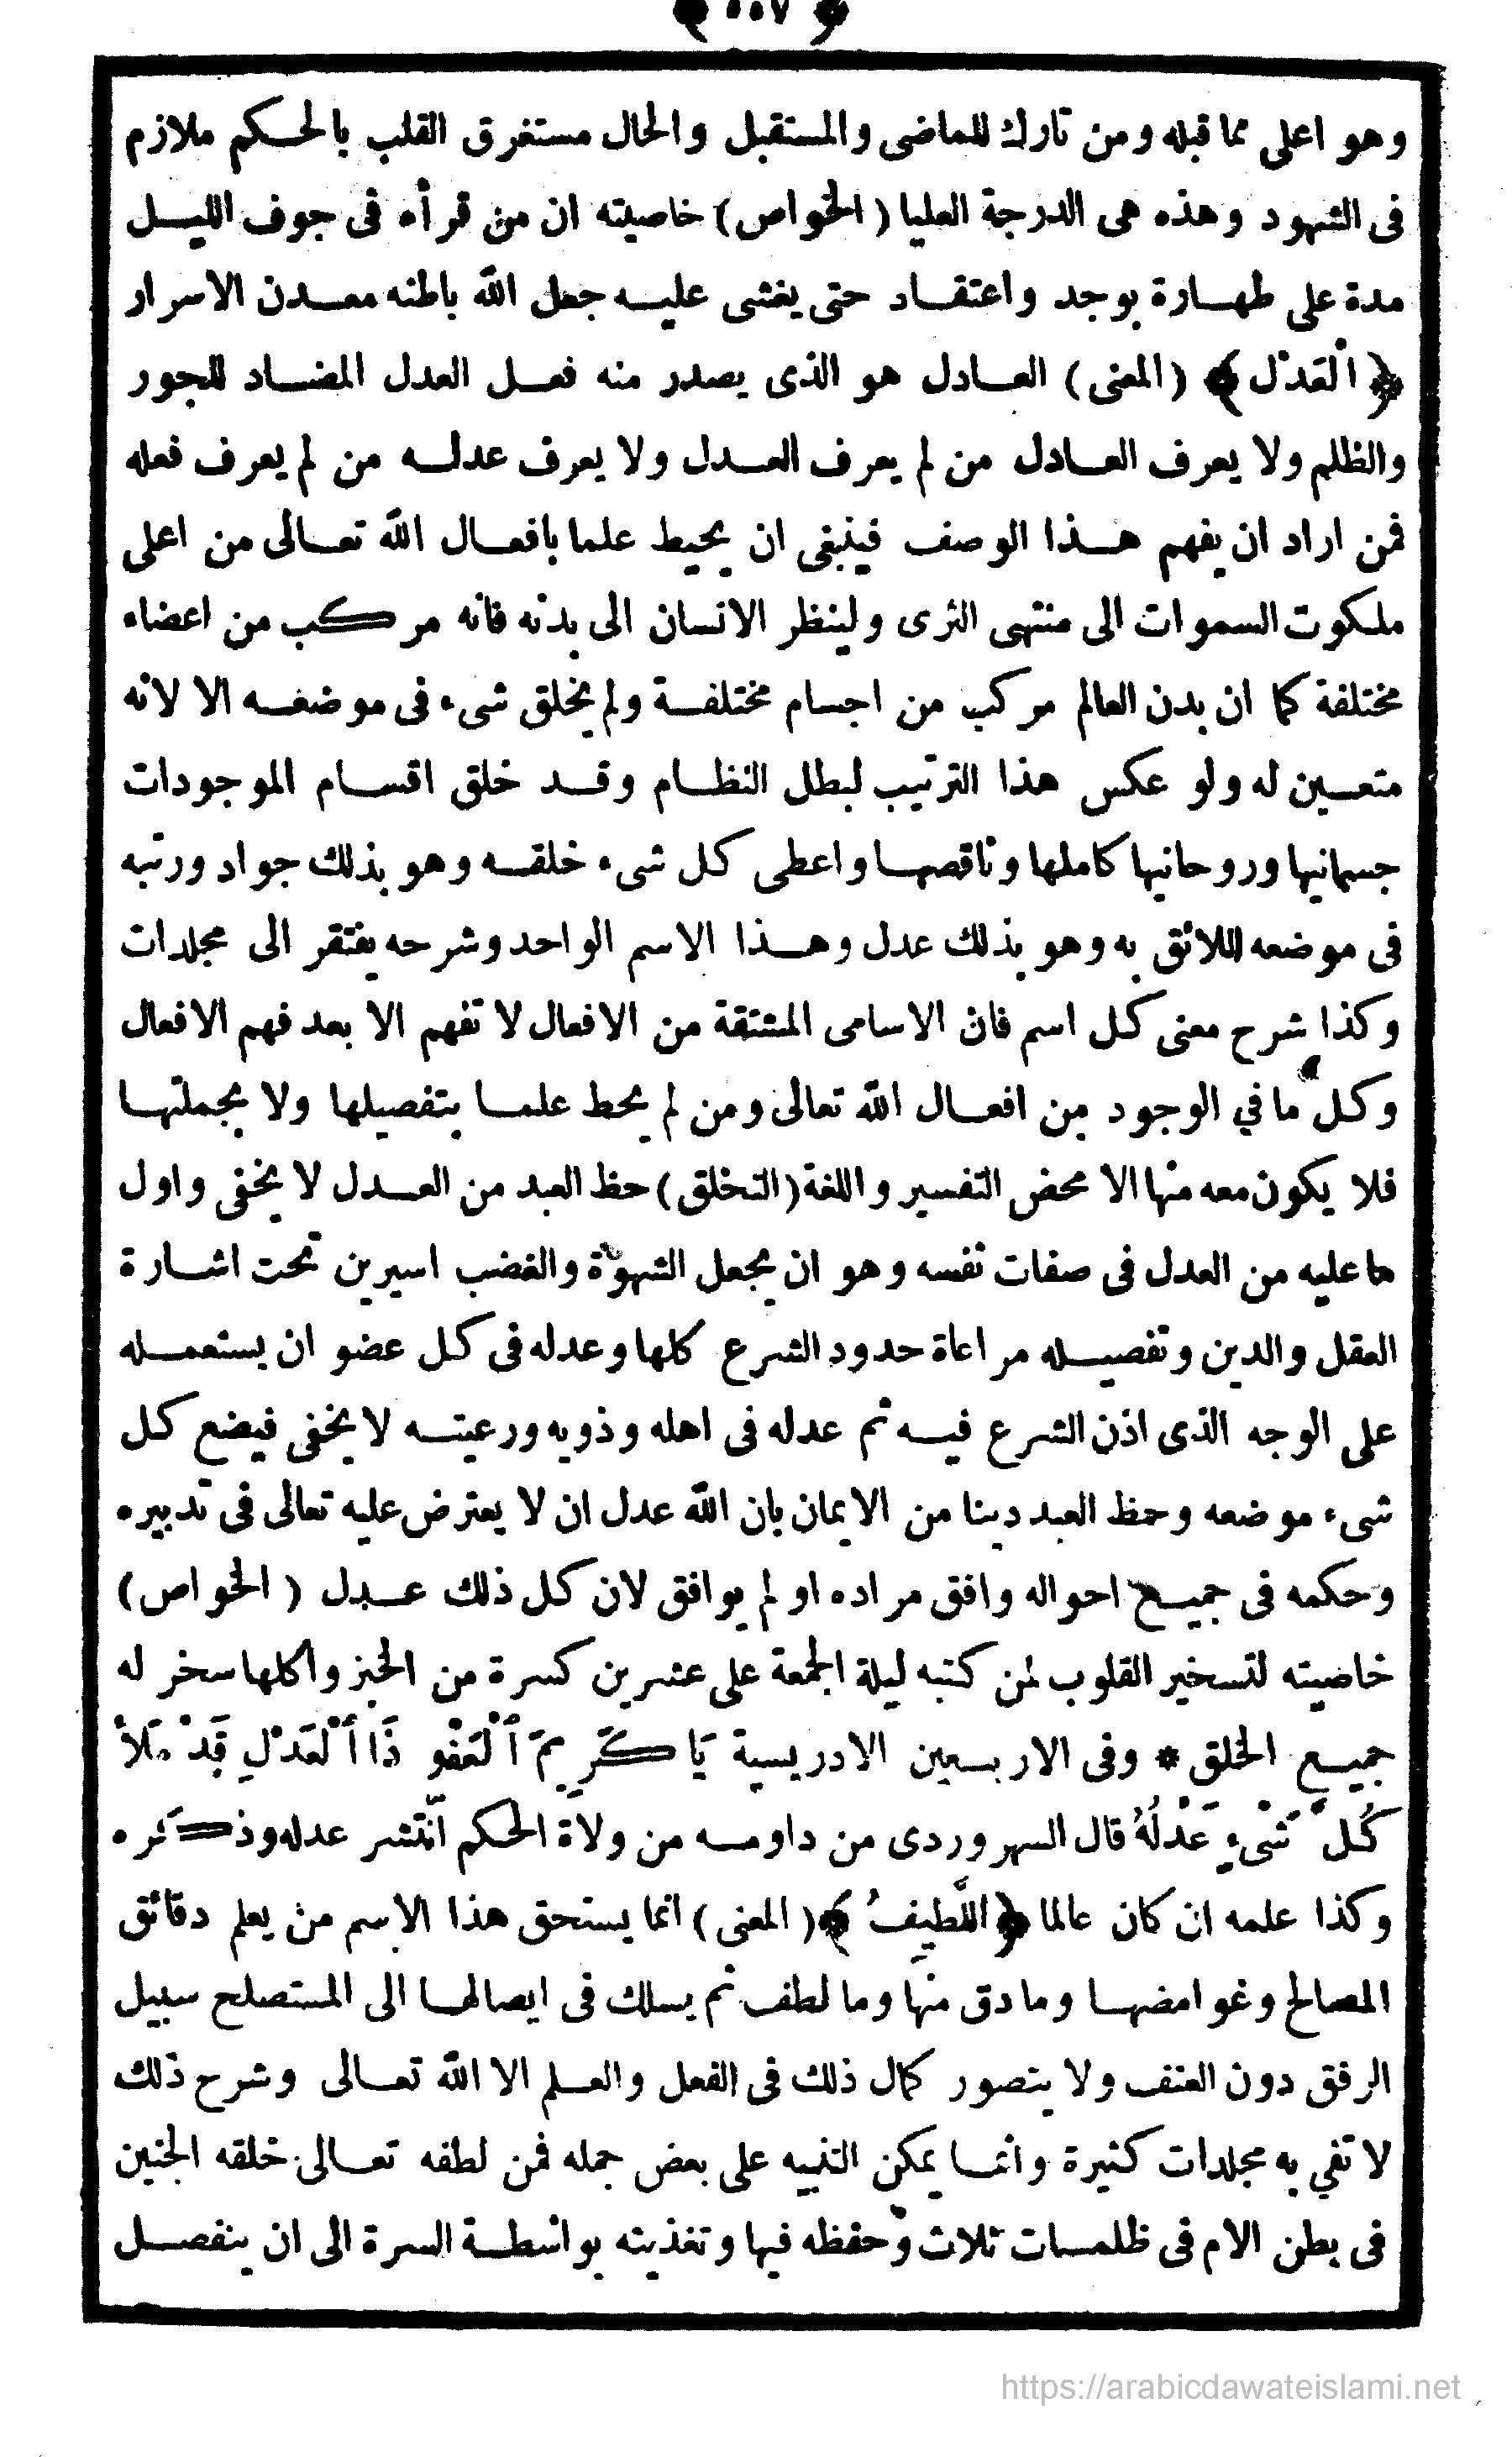 ﴿ ٥٥٧ ﴾
وهو اعلى مما قبله ومن تارك للماضى والمستقبل والحال مستغرق القلب بالحكم ملازم
فى الشهود وهذه هى الدرجة العليا (الخواص) خاصيته ان من قرأه فى جوف الليل
مدة على طهارة بوجد واعتقاد حتى يغشى عليه جعل الله باطنه معدن الاسرار
﴿الْعَدْل﴾ (المعنى) العادل هو الذى يصدر منه فعل العدل المضاد للجور
والظلم ولا يعرف العادل من لم يعرف العدل ولا يعرف عدله من لم يعرف فعله
فمن اراد ان يفهم هذا الوصف فينبغى ان يحيط علما بافعال الله تعالى من اعلى
ملكوت السموات الى منتهى الثرى ولينظر الانسان الى بدنه فانه مركب من اعضاء
مختلفة كما ان بدن العالم مركب من اجسام مختلفة ولم يخلق شىء فى موضعه الا لانه
متعين له ولو عكس هذا الترتيب لبطل النظام وقد خلق اقسام الموجودات
جسمانيها وروحانيها كاملها وناقصها واعطى كل شىء خلقه وهو بذلك جواد ورتبه
فى موضعه اللائق به وهو بذلك عدل وهذا الاسم الواحد وشرحه يفتقر الى مجلدات
وكذا شرح معنى كل اسم فان الاسامى المشتقة من الافعال لا تفهم الا بعد فهم الافعال
وكل ما في الوجود من افعال الله تعالى ومن لم يحط علما بتفصيلها ولا بجملتها
فلا يكون معه منها الا محض التفسير واللغة (التخلق) حظ العبد من العدل لا يخفى واول
ما عليه من العدل فى صفات نفسه وهو ان يجعل الشهوة والغضب اسيرين تحت اشارة
العقل والدين وتفصيله مراعاة حدود الشرع كلها وعدله فى كل عضو ان يستعمله
على الوجه الذى اذن الشرع فيه ثم عدله فى اهله وذويه ورعيته لا يخفى فيضع كل
شىء موضعه وحظ العبد دينا من الايمان بان الله عدل ان لا يعترض عليه تعالى فى تدبيره
وحكمه فى جميع احواله وافق مراده او لم يوافق لان كل ذلك عدل (الخواص)
خاصيته لتسخير القلوب لمن كتبه ليلة الجمعة على عشرين كسرة من الخبز واكلها سخر له
جميع الخلق * وفى الاربعين الادريسية يَا كَرِيمَ ٱلْعَفْوِ ذَا ٱلْعَدْلِ قَدْ مَلأَ
كُلَّ شَىْءٍ عَدْلُهُ قال السهروردى من داومه من ولاة الحكم انتشر عدله وذكره
وكذا علمه ان كان عالما ﴿اللَّطِيفُ﴾ (المعنى) انما يستحق هذا الاسم من يعلم دقائق
المصالح وغوامضها ومادق منها وما لطف ثم يسلك فى ايصالها الى المستصلح سبيل
الرفق دون العنف ولا يتصور كمال ذلك فى الفعل والعلم الا الله تعالى وشرح ذلك
لا تفي به مجلدات كثيرة وانما يمكن التنبيه على بعض جمله فمن لطفه تعالى خلقه الجنين
فى بطن الام فى ظلمات ثلاث وحفظه فيها وتغذيته بواسطة السرة الى ان ينفصل
https://arabicdawateislami.net